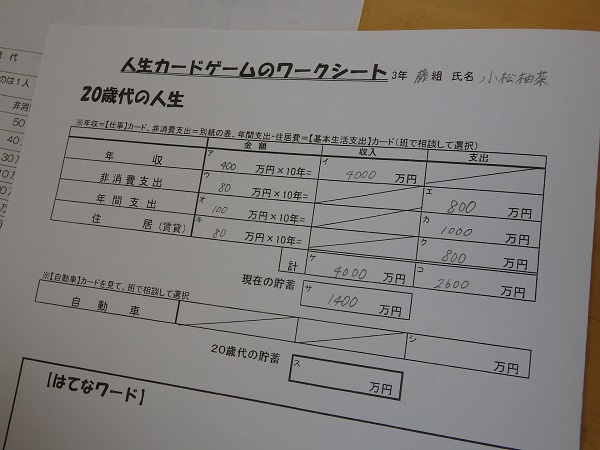 人生カードゲームのワークシート 3年 藤組 氏名 小松柚菜
20歳代の人生
※年収=【仕事】カード、非消費支出=別紙の表、年間支出・住居費=【基本生活支出】カード(班で相談して選択)
金額 収入 支出
年収 ア 400 万円×10年= イ 4000 万円
非消費支出 ウ 80 万円×10年= エ 800 万円
年間支出 オ 100 万円×10年= カ 1000 万円
住居(賃貸) キ 80 万円×10年= ク 800 万円
計 ケ 4000 万円 コ 2600 万円
現在の貯蓄 サ 1400 万円
※【自動車】カードを見て、班で相談して選択
自動車 シ 万円
20歳代の貯蓄 ス 万円
【はてなワード】
代
のは1人
非消
50
40
30万
10万